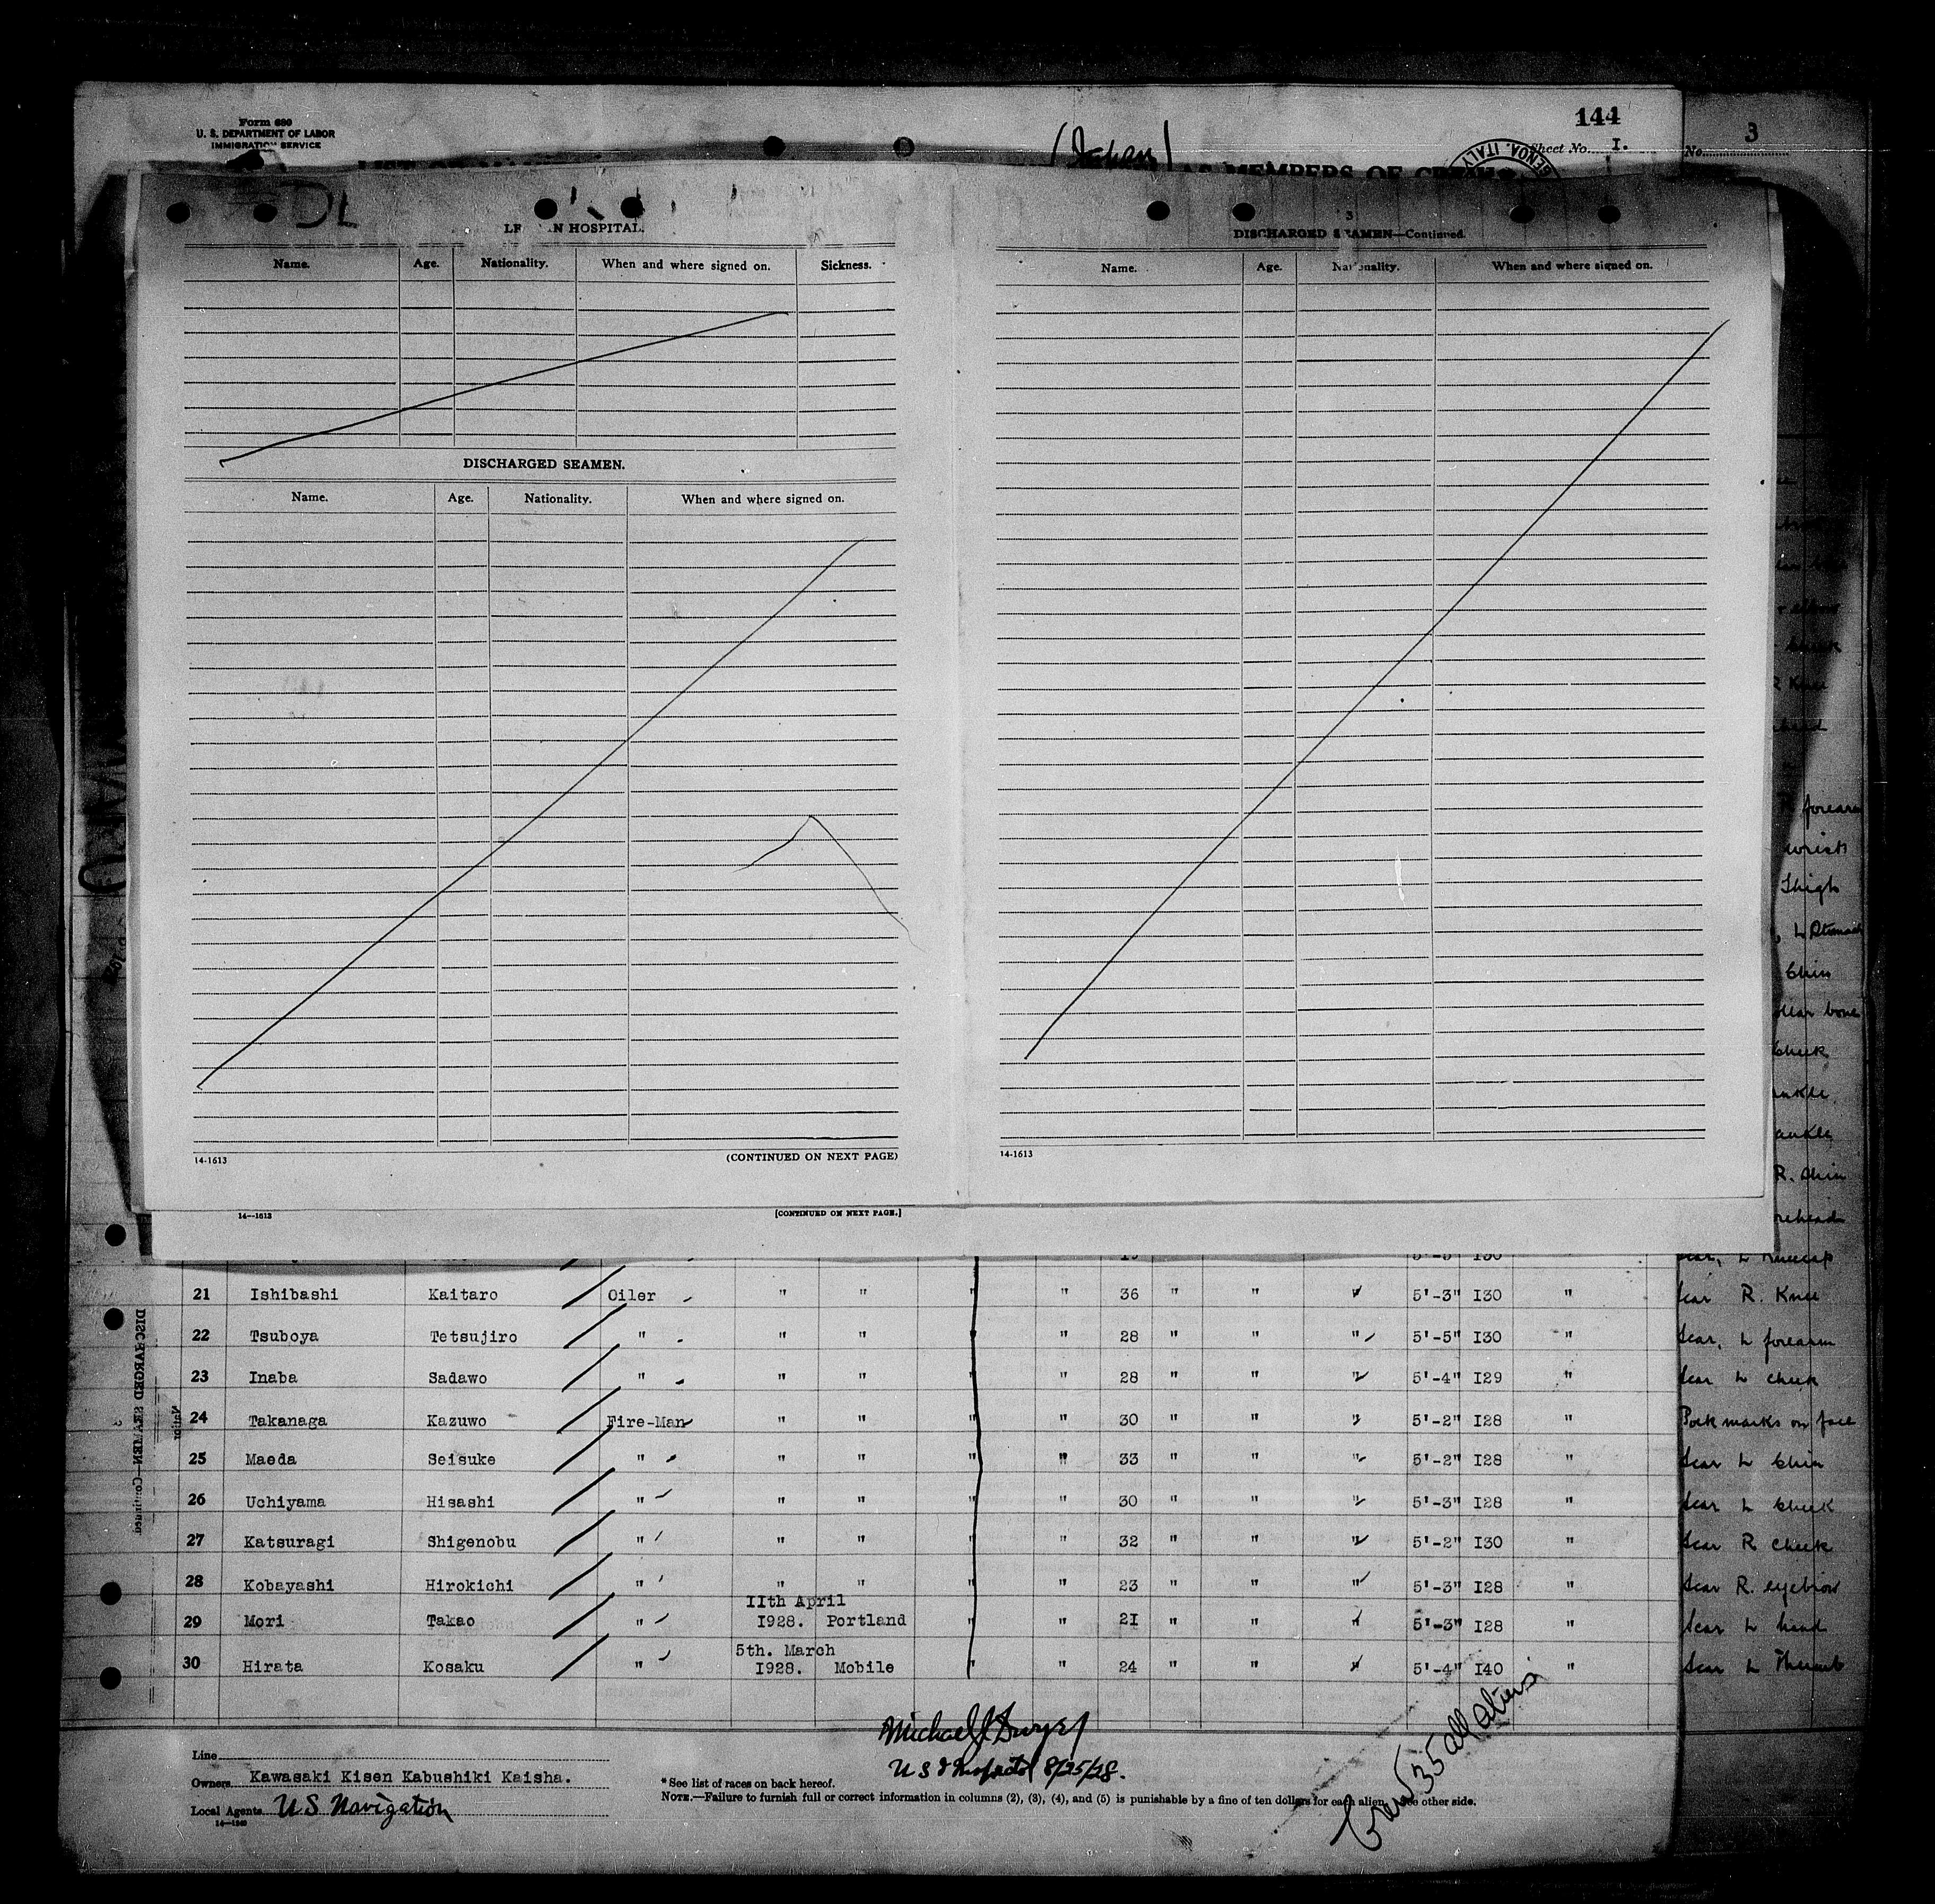 Form 680
U. S. DEPARTMENT OF LABOR
IMMIGRATION SERVICE
144
Sheet No. I.
No. 3
AS MEMBERS OF CREW
GENOA, ITALY
DL
HOSPITAL.
Name. Age. Nationality. When and where signed on. Sickness.
DISCHARGED SEAMEN.
Name. Age. Nationality. When and where signed on.
14-1613 (CONTINUED ON NEXT PAGE)
3
DISCHARGED SEAMEN—Continued.
Name. Age. Nationality. When and where signed on.
14-1613
14—1613 [CONTINUED ON NEXT PAGE.]
R Knee
forearm
wrist
Thigh
L Stomach
Chin
bone
Cheek
ankle
R. Shin
L Kneecap
DISCHARGED SEAMEN—Continued
21 Ishibashi Kaitaro Oiler " " " " 36 " " " 5'-3" I30 " Scar R. Knee
22 Tsuboya Tetsujiro " " " " " 28 " " " 5'-5" I30 " Scar, L forearm
23 Inaba Sadawo " " " " " 28 " " " 5'-4" I29 " Scar L cheek
24 Takanaga Kazuwo Fire-Man " " " " 30 " " " 5'-2" I28 " Pock marks on face
25 Maeda Seisuke " " " " " 33 " " " 5'-2" I28 " Scar L Chin
26 Uchiyama Hisashi " " " " " 30 " " " 5'-3" I28 " Scar L Cheek
27 Katsuragi Shigenobu " " " " " 32 " " " 5'-2" I30 " Scar R Cheek
28 Kobayashi Hirokichi " " " " " 23 " " " 5'-3" I28 " Scar R. eyebrow
29 Mori Takao " IIth April I928. Portland " " 2I " " " 5'-3" I28 " Scar L hand
30 Hirata Kosaku " 5th. March I928. Mobile " " 24 " " " 5'-4" I40 " Scar L Thumb
Line
Owners Kawasaki Kisen Kabushiki Kaisha.
Local Agents U.S. Navigation
14—1240
Michael J. Dwyer
U S I Inspector 8/25/28.
* See list of races on back hereof.
NOTE.—Failure to furnish full or correct information in columns (2), (3), (4), and (5) is punishable by a fine of ten dollars for each alien. See other side.
Crew 35 all aliens